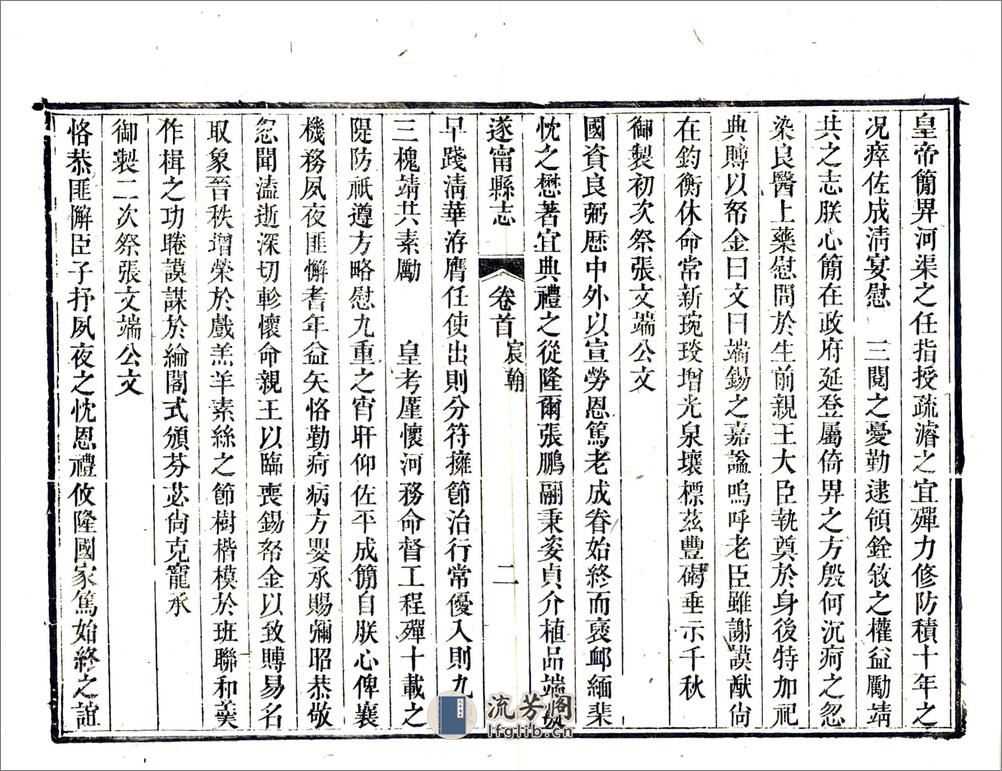 皇帝簡畀河渠之任指授疏濬之宜殫力修防積十年之
况瘁佐成淸宴慰　三閱之憂勤逮領銓敘之權益勵靖
共之志朕心簡在政府延登屬倚畀之方殷何沉疴之忽
染良醫上藥慰問於生前親王大臣執奠於身後特加祀
典賻以帑金曰文曰端錫之嘉謚嗚呼老臣雖謝謨猷尙
在鈞衡休命常新琬琰增光泉壤標茲豐碣垂示千秋
御製初次祭張文端公文
國資良弼歷中外以宣勞恩篤老成眷始終而褒衈緬棐
忱之懋著宜典禮之從隆爾張鵬翮秉姿貞介植品端
遂甯縣志
卷首
宸翰
二
早踐淸華洊膺任使出則分符擁節治行常優入則九
三槐靖共素勵　皇考厪懷河務命督工程殫十載之
隄防祇遵方略慰九重之宵旰仰佐平成簡自朕心俾襄
機務夙夜匪懈耆年益矢恪勤疴病方嬰承賜彌昭恭敬
忽聞溘逝深切軫懷命親王以臨喪錫帑金以致賻易名
取象晉秩增榮於戲羔羊素絲之節樹楷模於班聯和羹
作楫之功睠謨謀於綸閣式頒芬苾尙克寵承
御製二次祭張文端公文
恪恭匪懈臣子抒夙夜之忱恩禮攸隆國家篤始終之誼
流芳阁
lfglib.cn